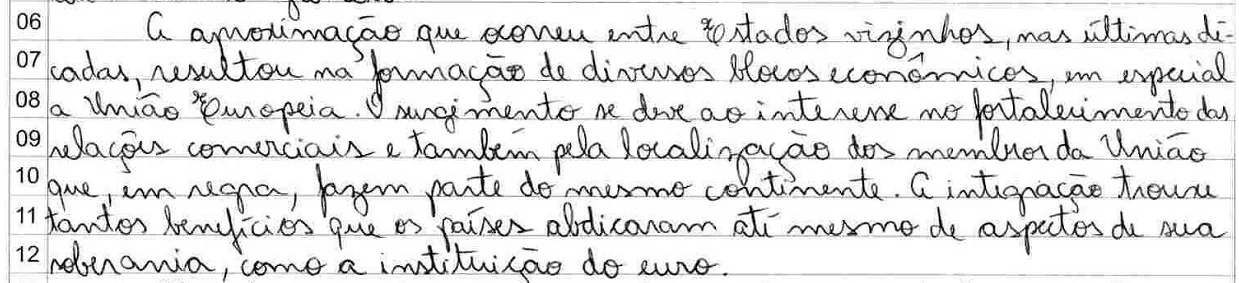 06 A aproximação que ocorreu entre Estados vizinhos, nas últimas dé-
07 cadas, resultou na formação de diversos blocos econômicos, em especial
08 a União Europeia. O surgimento se deve ao interesse no fortalecimento das
09 relações comerciais e também pela localização dos membros da União
10 que, em regra, fazem parte do mesmo continente. A integração trouxe
11 tantos benefícios que os países abdicaram até mesmo de aspectos de sua
12 soberania, como a instituição do euro.